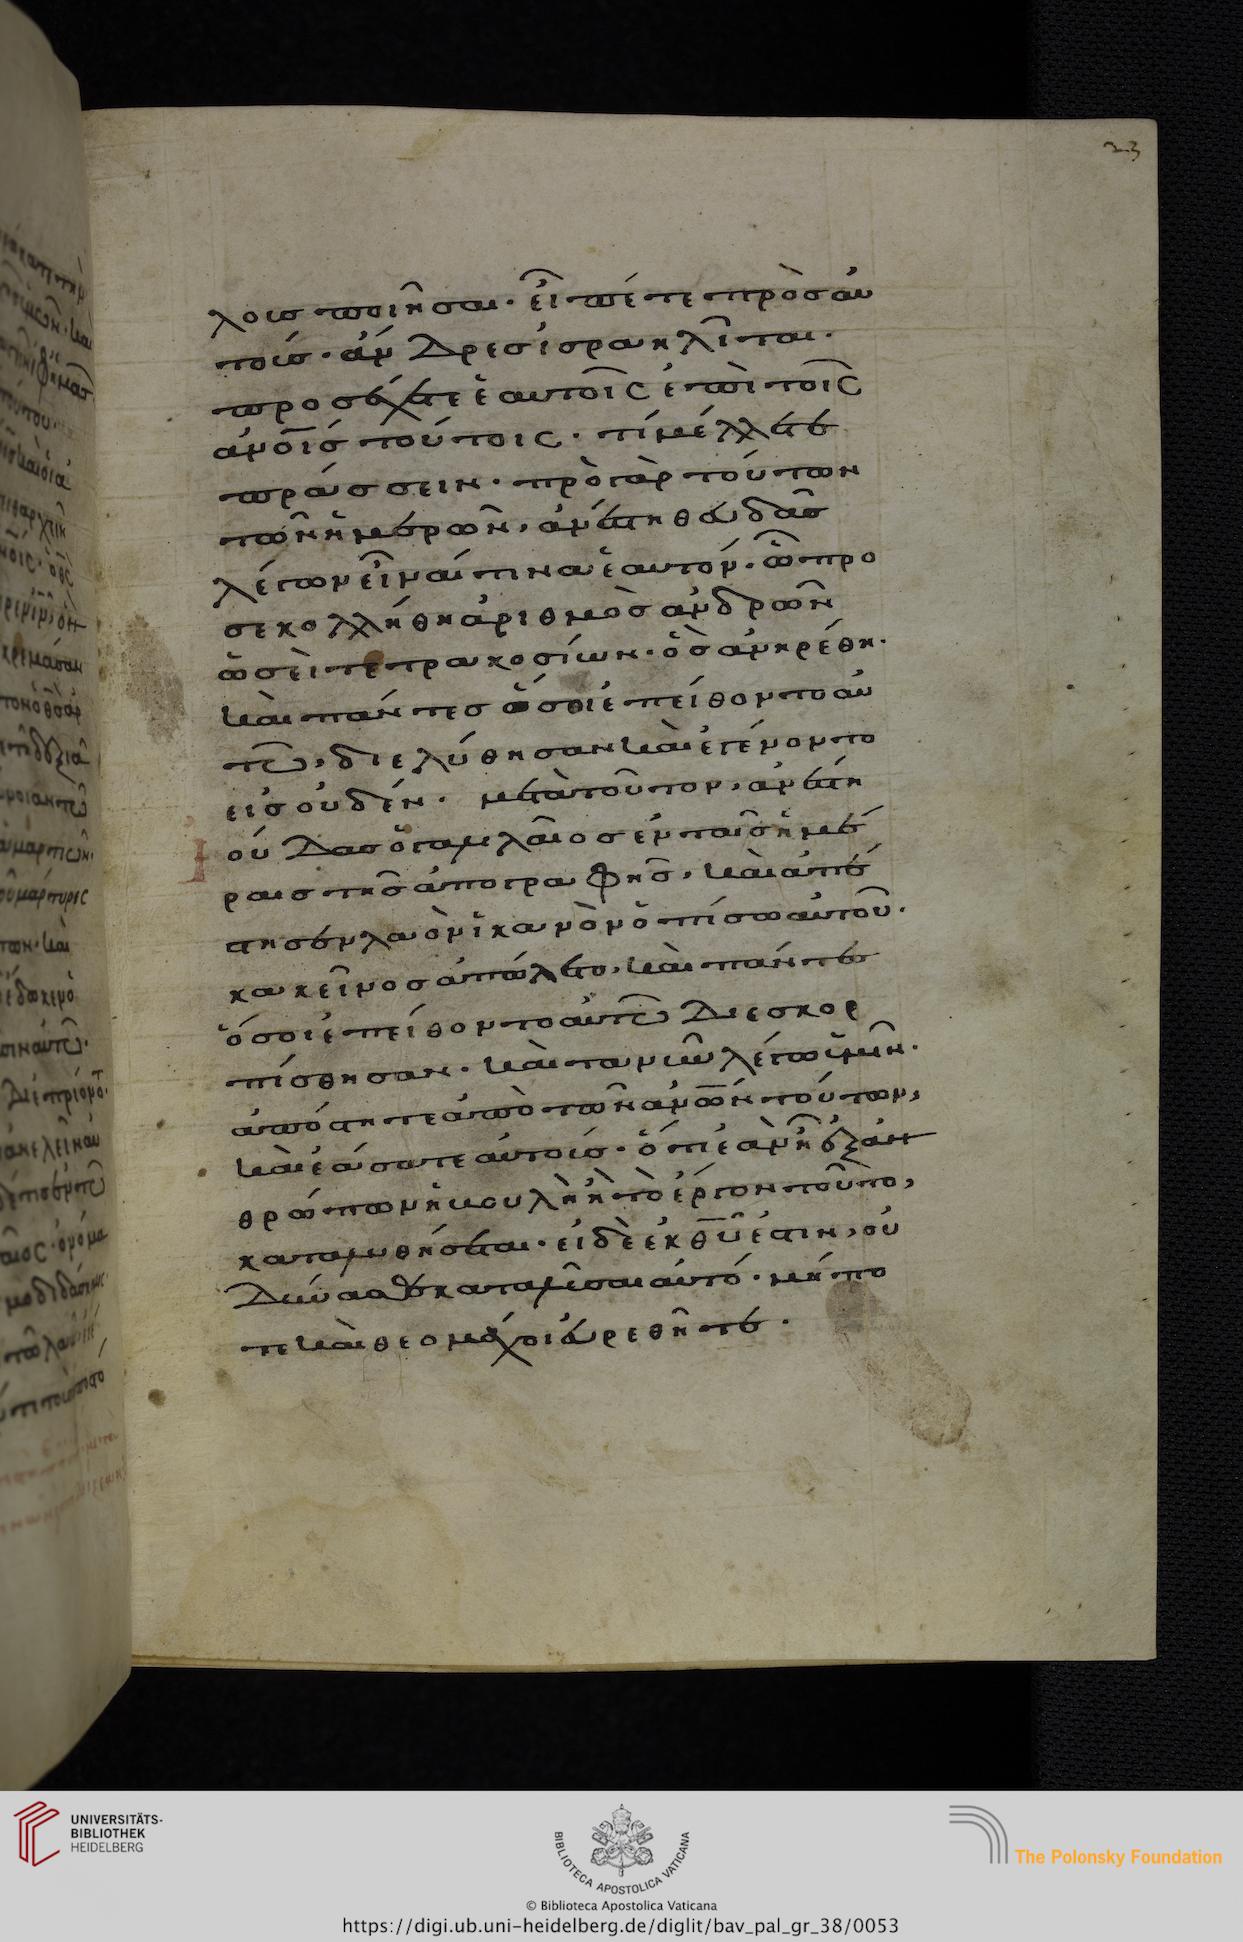 23
λοις ποιῆσαι· εἶπέ τε πρὸς αὐ
τούς· ἄνδρες ἰσραηλῖται·
προσέχετε ἑαυτοῖς ἐπὶ τοῖς
ἀνοῖς τούτοις· τί μέλλετε
πράσσειν· πρὸ γὰρ τούτων
τῶν ἡμερῶν, ἀνέστη θευδᾶς
λέγων εἶναί τινα ἑαυτόν· ὧ προ
σεκολλήθη ἀριθμὸς ἀνδρῶν
ὡσεὶ τετρακοσίων· ὃς ἀνηρέθη·
καὶ πάντες ὅσοι ἐπείθοντο αὐ
τῶ, διελύθησαν καὶ ἐγένοντο
εἰς οὐδέν· μετὰ τοῦτον, ἀνέστη
ἰούδας ὁ γαλιλαῖος ἐν ταῖς ἡμέ
ραις τῆς ἀπογραφῆς, καὶ ἀπέ
στησεν λαὸν ἱκανὸν ὀπίσω αὐτοῦ·
κακεῖνος ἀπώλετο, καὶ πάντες
ὅσοι ἐπείθοντο αὐτῶ διεσκορ
πίσθησαν· καὶ τανῦν λέγω ὑμῖν·
ἀπόστητε ἀπὸ τῶν ἀνῶν τούτων,
καὶ ἐάσατε αὐτούς· ὅτι ἐὰν ἦ ἐξ ἀν
θρώπων ἡ βουλὴ ἢ τὸ ἔργον τοῦτο,
καταλυθήσεται· εἰ δὲ ἐκ θυ ἐστιν, οὐ
δύνασθε καταλῦσαι αὐτό· μήπο
τε καὶ θεομάχοι εὑρεθῆτε·
UNIVERSITÄTS-
BIBLIOTHEK
HEIDELBERG
BIBLIOTECA APOSTOLICA VATICANA
The Polonsky Foundation
© Biblioteca Apostolica Vaticana
https://digi.ub.uni-heidelberg.de/diglit/bav_pal_gr_38/0053